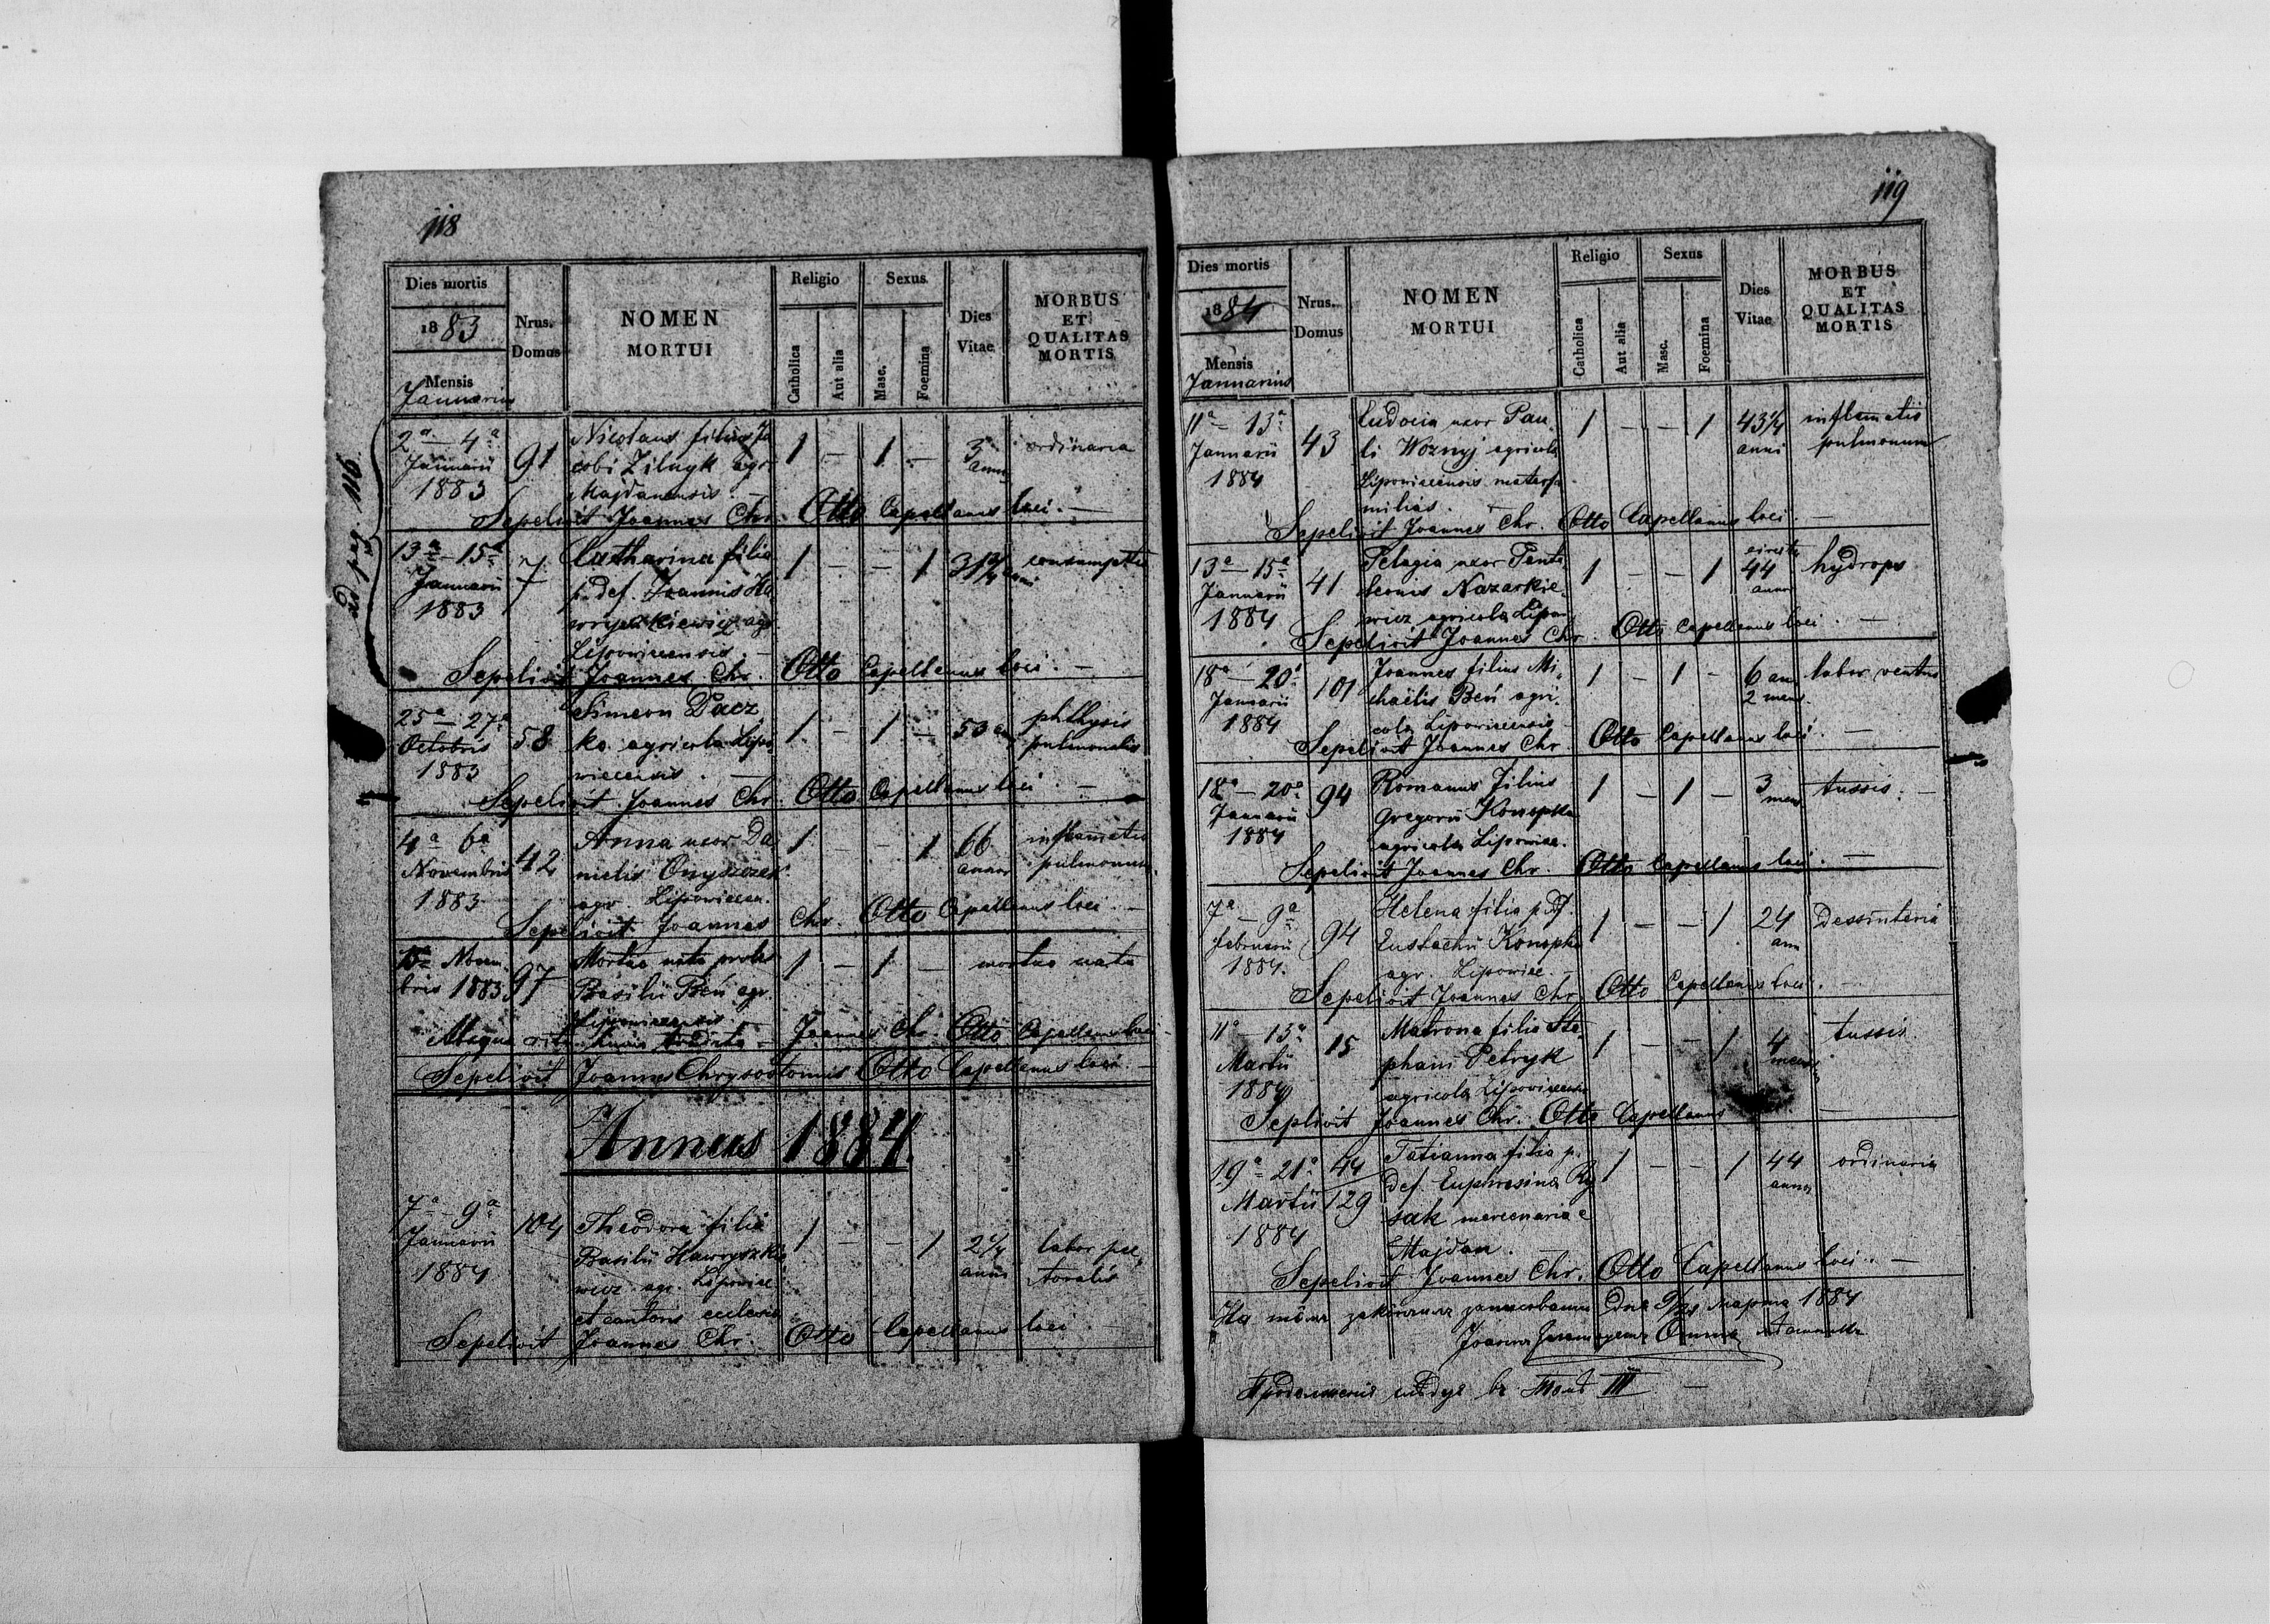 118
ad pag. 116
Dies mortis
1883
Mensis
Januarius
Nrus. Domus
NOMEN MORTUI
Religio
Catholica
Aut alia
Sexus
Masc.
Foemina
Dies Vitae
MORBUS ET QUALITAS MORTIS
2ª — 4ª Januarii 1883
91
Nicolaus filius Ja
cobi Ziluyk agr.
Majdanensis. —
1 — 1 —
3 anni
ordinaria
Sepelivit Joannes Chr. Otto Capellanus loci. —
13ª — 15ª Januarii 1883
7
Catharina filia
p. def. Joannis Ha
wryszkiewicz agr.
Lipowiecensis. —
1 — — 1
anni
Sepelivit Joannes Chr. Otto Capellanus loci. —
25ª — 27ª Octobris 1883
58
Simeon Dacz
ko agricola Lipo
wiecensis. —
1 — 1 —
53
phthysis
pulmonalis
Sepelivit Joannes Chr. Otto Capellanus loci. —
4ª 6ª Novembris 1883
42
Anna uxor Da
nielis Onyszczak
agr. Lipowiecen.
1 — — 1
66 annor
inflamatio
pulmonum
Sepelivit Joannes Chr. Otto Capellanus loci. —
Novem
bris 1883
97
Mortua nata proles
Basilii Beń agr.
Lipowiecensis.
1 — 1 —
mortua nata
Absque ritu Joannes Chr. Otto Capellanus loci
Sepelivit Joannes Chrysostomus Otto Capellanus loci. —
Annus 1884.
7ª — 9ª Januarii 1884
104
Theodora filia
Basilii Hawryszkie
wicz agr. Lipowiec
et cantoris ecclesiae
1 — — 1
2 1/4 anni
labor pec
toralis
Sepelivit Joannes Chr. Otto Capellanus loci. —
119
Dies mortis
1884
Mensis
Januarius
Nrus. Domus
NOMEN MORTUI
Religio
Catholica
Aut alia
Sexus
Masc.
Foemina
Dies Vitae
MORBUS ET QUALITAS MORTIS
11ª — 13ª Januarii 1884
43
Eudocia uxor Pau
li Woznyj agricola
Lipowiecensis materfa
milias. —
1 — — 1
43 1/4 anni
inflamatio
pulmonum
Sepelivit Joannes Chr. Otto Capellanus loci. —
13ª — 15ª Januarii 1884
41
Pelagia uxor Pante
leonis Nazarkie
wicz agricola Lipow
1 — — 1
44 annor
hydrops
Sepelivit Joannes Chr. Otto Capellanus loci. —
18ª — 20ª Januarii 1884
101
Joannes filius Mi
chaëlis Beń agri
cola Lipowiecensis
1 — 1 —
6 an
2 mens.
labor ventris
Sepelivit Joannes Chr. Otto Capellanus loci. —
18ª — 20ª Januarii 1884
94
Romanus filius
Gregorii Konopka
agricola Lipowiec.
1 — 1 —
3 mens
tussis. —
Sepelivit Joannes Chr. Otto Capellanus loci. —
7ª — 9ª Februarii 1884.
94
Helena filia p. df.
Eustachii Konopka
agr. Lipowiec. —
1 — — 1
24 ann
Dessinteria
Sepelivit Joannes Chr. Otto Capellanus loci. —
11ª — 13ª Martii 1884
15
Matrona filia Ste
phani Petryk
agricola Lipowiecensis
1 — — 1
4 mens
tussis.
Seplivit Joannes Chr. Otto Capellanus —
19ª — 21ª Martii 1884
44
129
Tatianna filia p.
def. Euphrosina Ry
sak mercenariae
Majdan. —
1 — — 1
44 annor
ordinaria
Sepelivit Joannes Chr. Otto Capellanus loci. —
На дня 9/21 марта 1884
Іоаннъ
III —